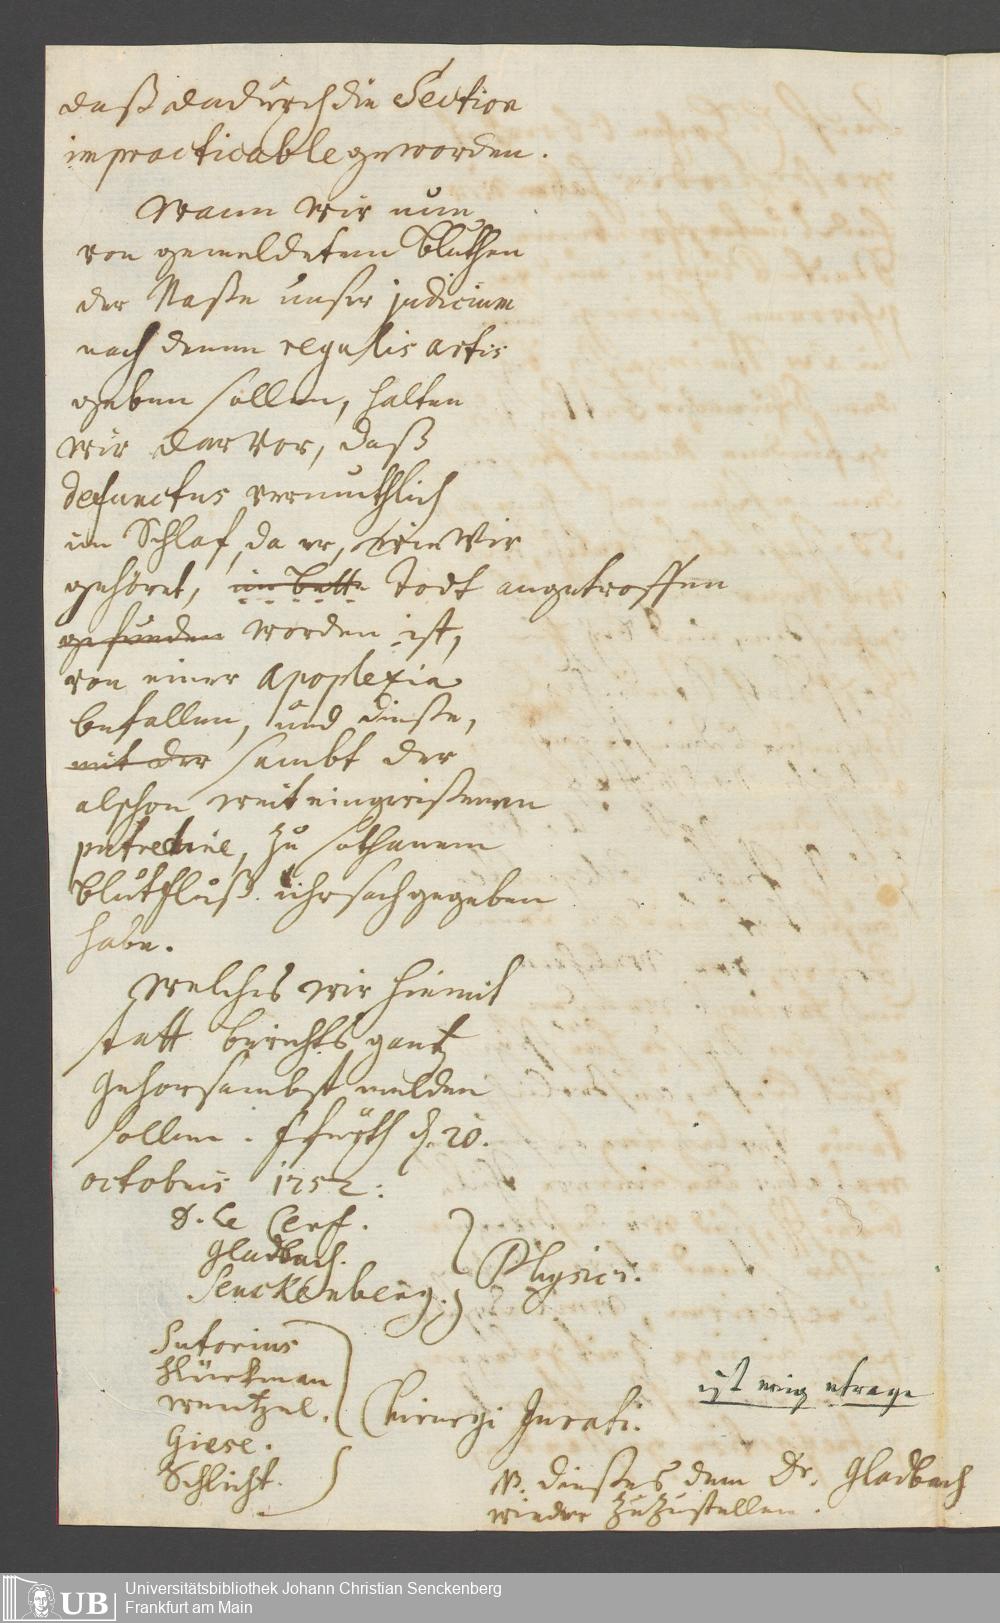 daß dadurch die Section
impracticable geworden.
Wann wir nun
von gemeldetem Bluthen
der Naße unser judicium
nach denen regulis artis
geben sollen, halten
wir darvor, daß
defunctus vermuthlich
im Schlaf, da er, wie Wir
gehöret, im bette Todt angetroffen
gefunden worden ist,
von einer Apoplexia
befallen, und dieße,
mit der sambt der
alschon weit eingerißenen
putredine, zu sothanem
Blutfluß uhrsach gegeben
habe.
Welches wir hiemit
statt berichts gantz
gehorsambst melden
sollen. Ffurth d. 20.
octobris 1752:
D. Le Cerf.
Gladbach.
Senckenberg.
Physici.
Sutorius
Klürkman
Wentzel.
Giese.
Schlicht.
Chirurgi Jurati.
ist eingetragen
NB. dießes dem Dr. Gladbach
wieder zuzustellen.
UB
Universitätsbibliothek Johann Christian Senckenberg
Frankfurt am Main